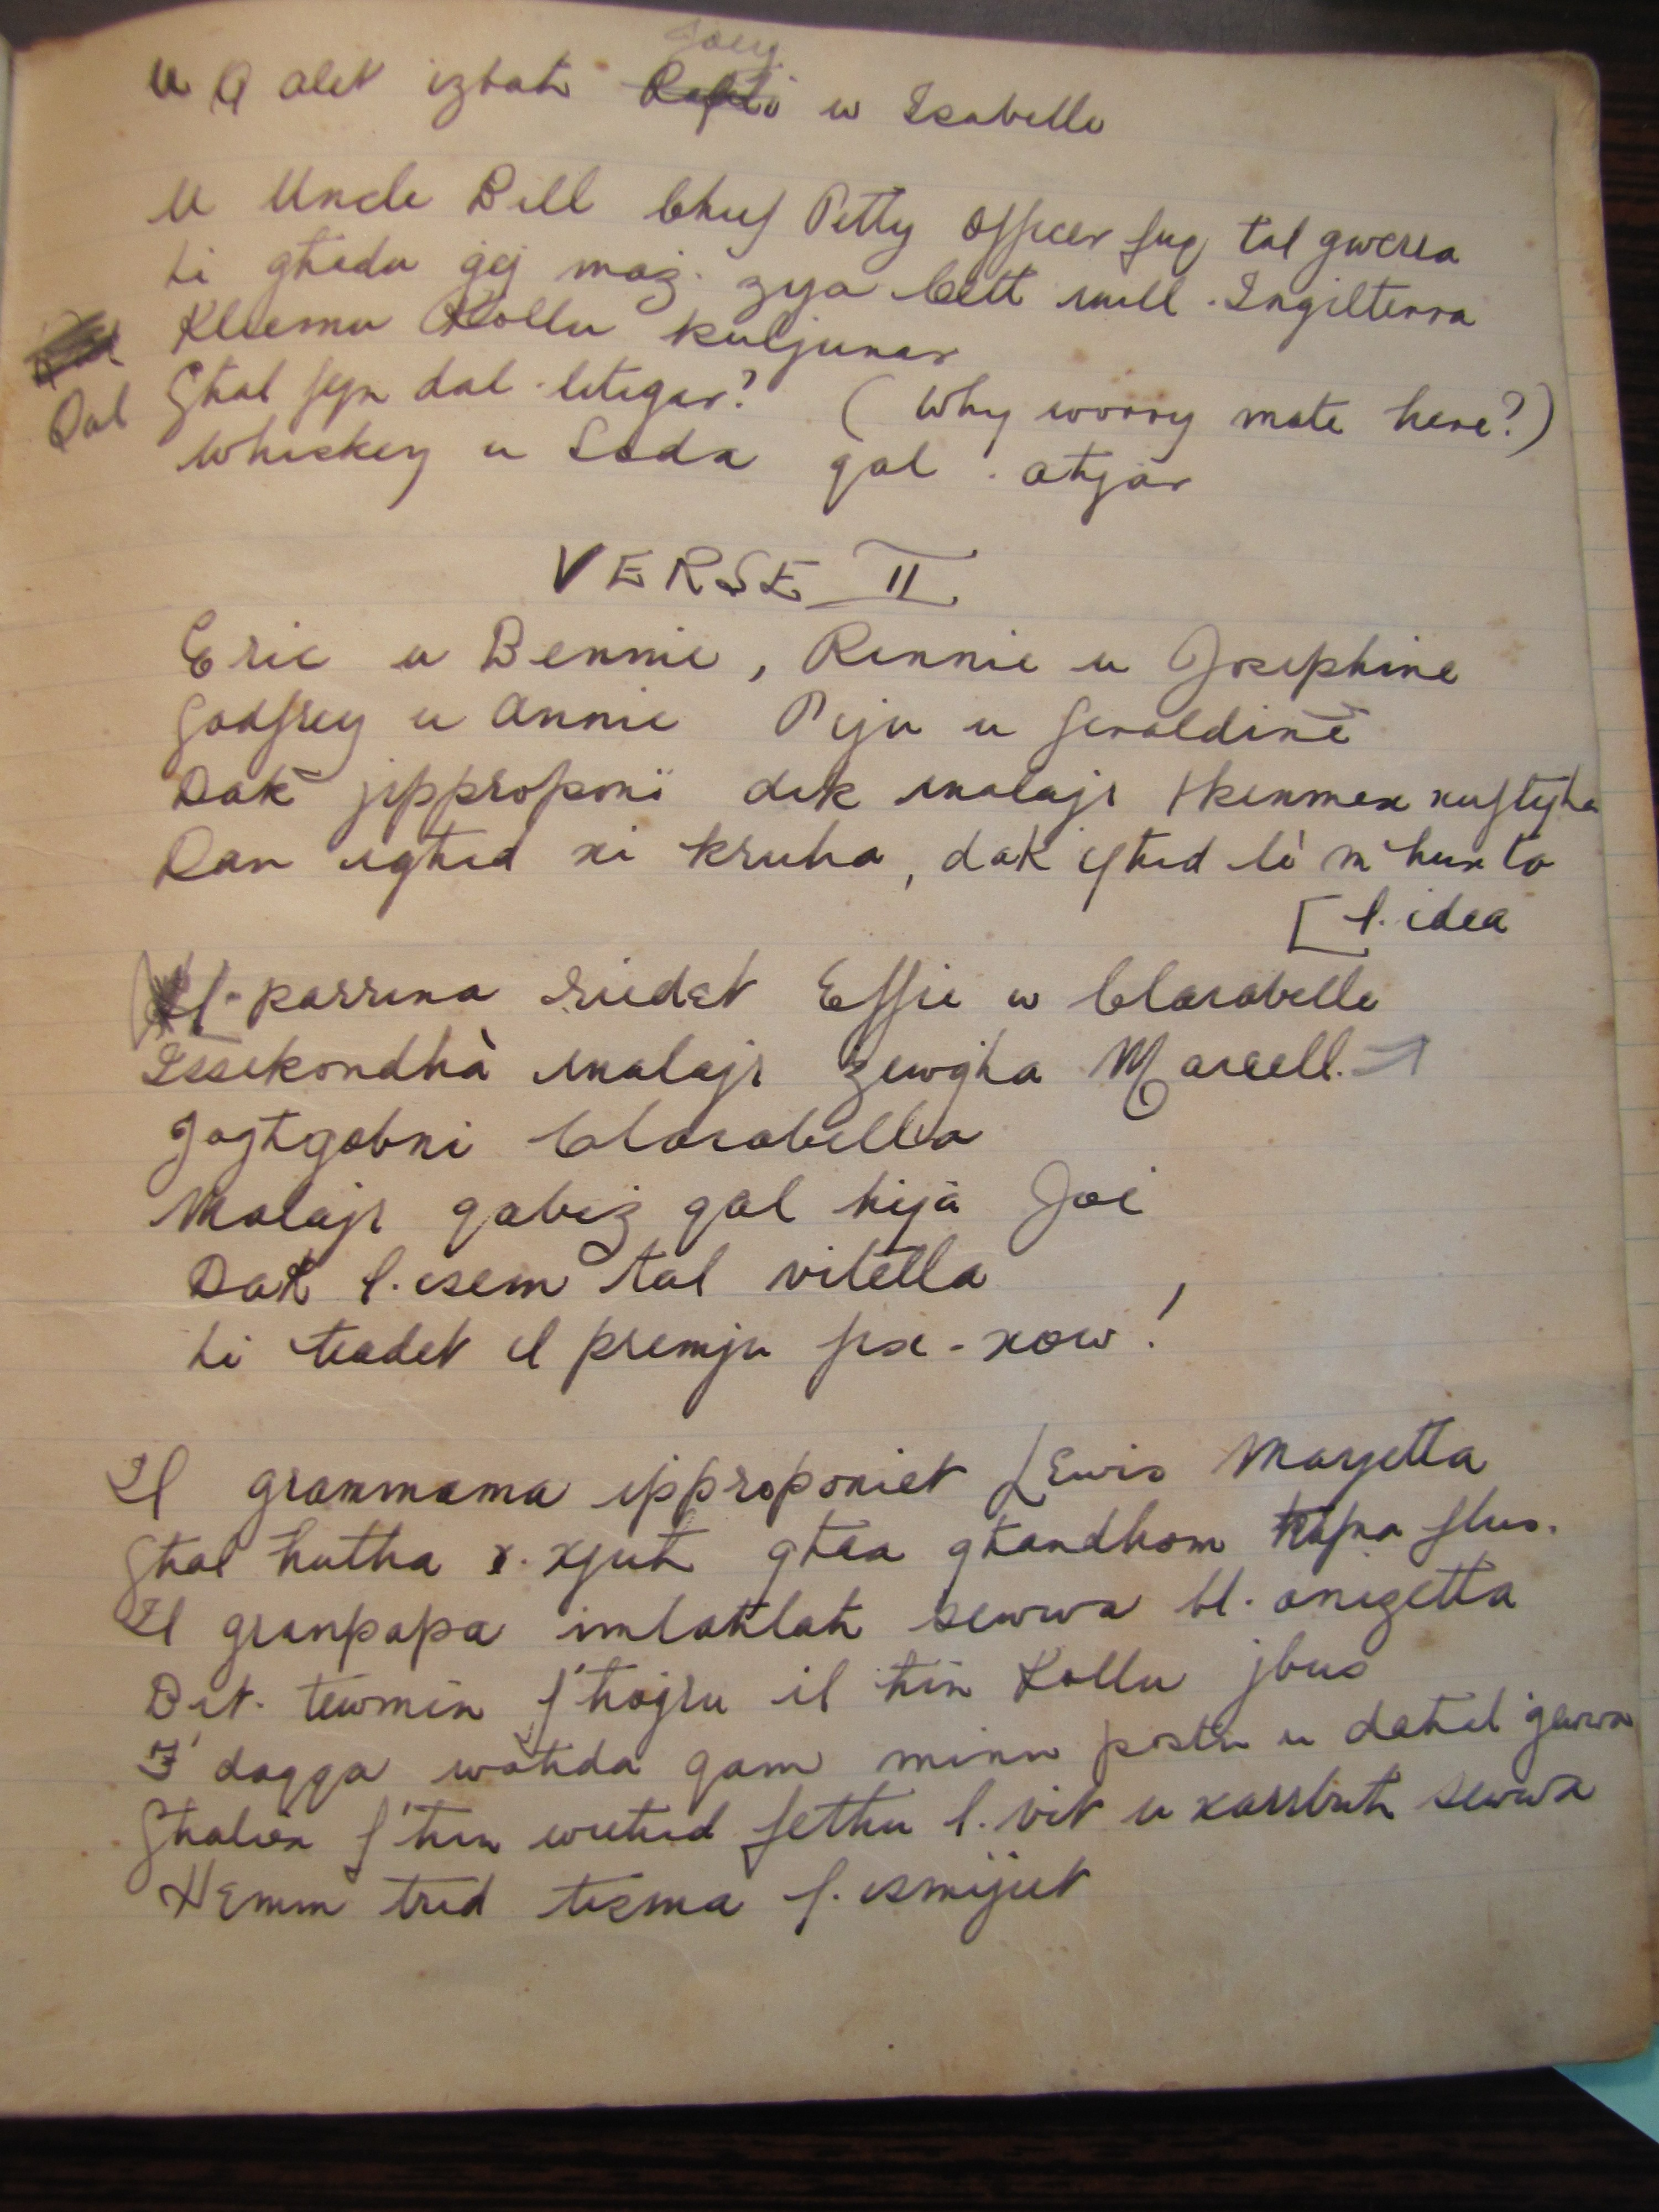 Joey
u Q alet izbah u Isabelle
U Uncle Bill Chief Petty Officer fuq tal gwerra
Li ghadu gej maz. zija Cett mill. Ingilterra
Kliemu Kollu kuljunar
Dal Ghal fejn dal. letigar? (Why worry mate here?)
Whiskey u Soda qal. ahjar
VERSE II
Eric u Bennie, Rennie u Josephine
Godfrey u Annie Peju u Geraldine
Dak jipproponi dik malajr Hkenmex xuftijha
Dan ighid xi kruha, dak ighid li m'hux ta
[l. idea
Il-parrina riedet Effie u Clarabelle
Issekondha malajr zewgha Marcell.
Joghgobni Clarabella
Malajr qabez qal hija Joe
Dak l. isem tal vitella
Li hadet il premju fix-xow!
Il grammama ipproponiet LEwis Marjetta
Ghal hutha x. xjuh ghax ghandhom hafna flus.
Il granpapa imlahlah sewwa bl. anizetta
Dit. tewmin f'hogru il hin Kollu jbus
F'daqqa wahda qam minn postu u dahal gewwa
Ghaliex f'hin wiehed fethu l. vit u xarrbuh sewwa
HEmm trid tisma l. ismijiet